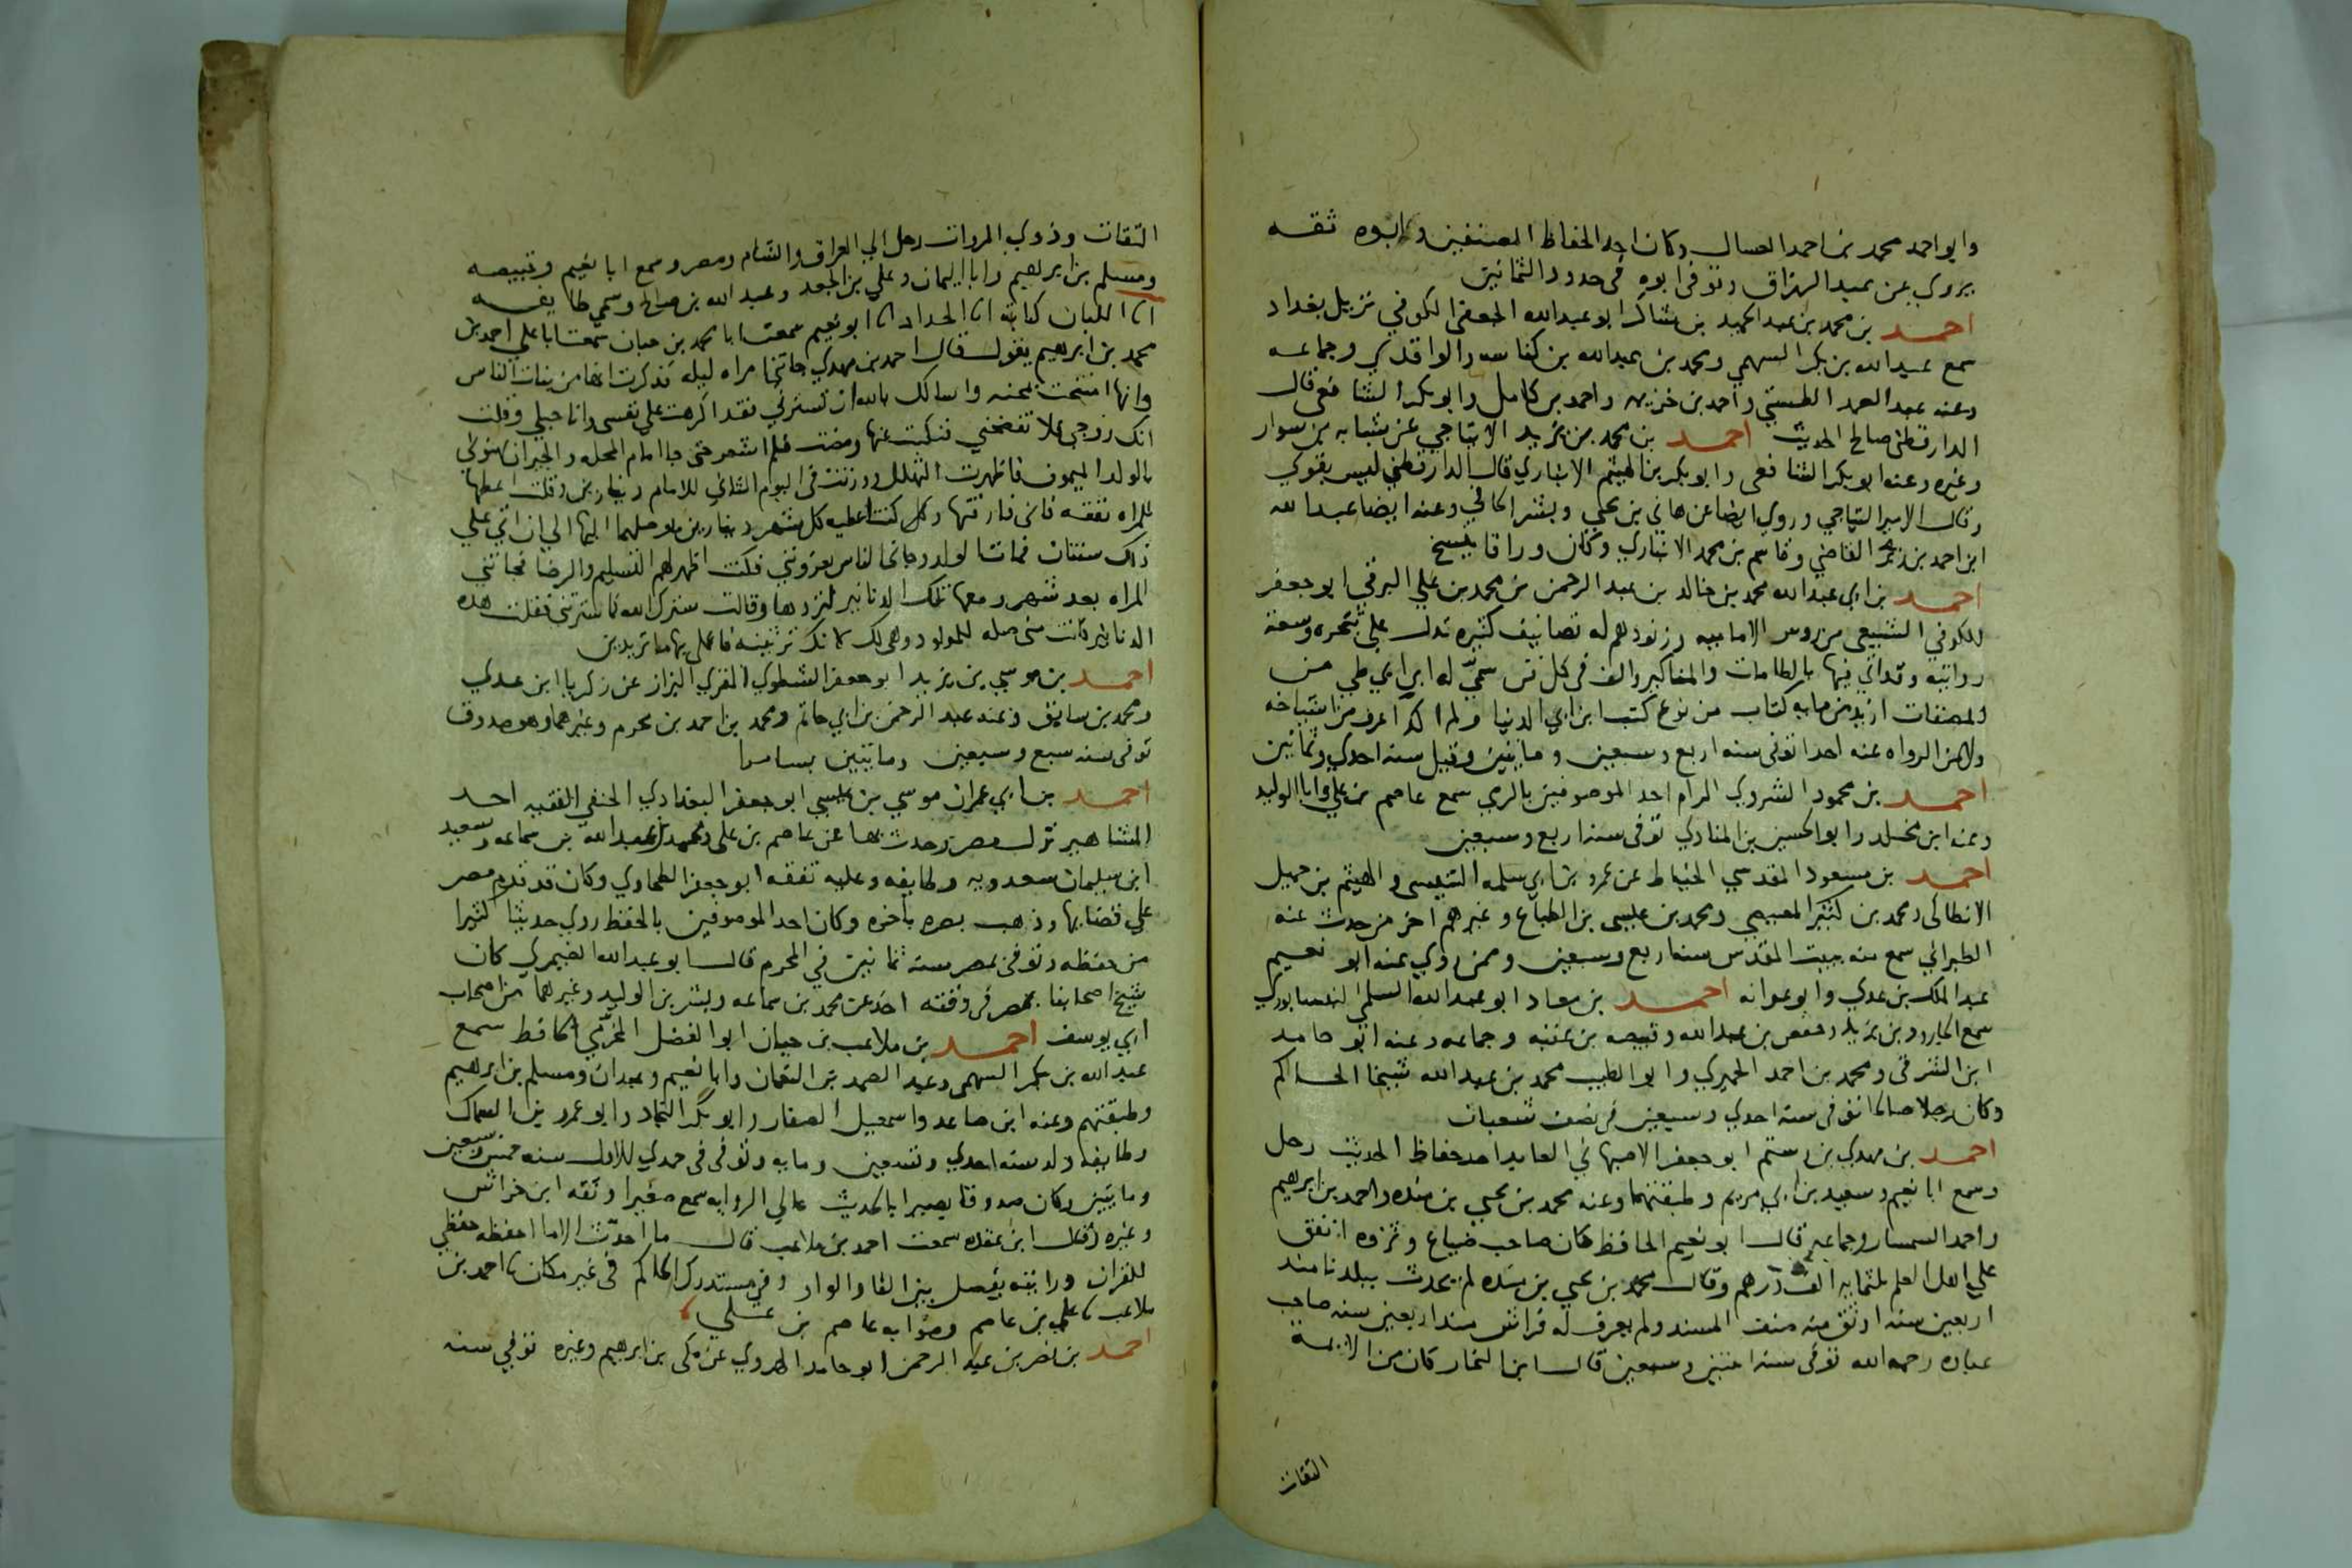 وابو احمد محمد بن احمد العسال وكان احد الحفاظ المصنفين وابوه ثقه
يروي عن عبد الرزاق وتوفي ابوه في حدود الثمانين
احمد بن محمد بن عبد الحميد بن شاكر ابو عبد الله الجعفي الكوفي نزيل بغداد
سمع عبد الله بن بكر السهمي ومحمد بن عبد الله بن كناسه والواقدي وجماعه
وعنه عبد الصمد الطستي واحمد بن خزيمه واحمد بن كامل وابو بكر الشافعي قال
الدارقطني صالح الحديث احمد بن محمد بن يزيد الايتاخي عن شبابه بن سوار
وغيره وعنه ابو بكر الشافعي وابو بكر بن الهيثم الانباري قال الدارقطني ليس بقوي
وقال الامير التياخي وروي ايضا عن هاني بن يحيي وبشر الحافي وعنه ايضا عبد الله
ابن احمد بن زبر القاضي وقاسم بن محمد الانباري وكان وراقا ينسخ
احمد بن ابي عبد الله محمد بن خالد بن عبد الرحمن بن محمد بن علي البرقي ابو جعفر
الكوفي الشيعي من روس الاماميه وزنودهم له تصانيف كثيره تدل علي تبحره وسعة
روايته وقد اتي فيها بالطامات والمناكير والف في كل فن سمي له ابن ابي طي من
المصنفات ازيد من مايه كتاب من نوع كتب ابن ابي الدنيا ولم اكد اعرف من اشياخه
ولا من الرواه عنه احدا توفي سنه اربع وسبعين ومايتين وقيل سنه احدي وثمانين
احمد بن محمود الشروي الرام احد الموصوفين بالري سمع عاصم بن علي وابا الوليد
وعنه ابن مخلد وابو الحسين بن المنادي توفي سنه اربع وسبعين
احمد بن مسعود المقدسي الخياط عن عمرو بن ابي سلمه التنيسي والهيثم بن جميل
الانطاكي ومحمد بن كثير المصيصي ومحمد بن عيسي بن الطباع وغيرهم اخر من حدث عنه
الطبراني سمع منه ببيت المقدس سنه اربع وسبعين وممن روي عنه ابو نعيم
عبد الملك بن عدي وابو عوانه احمد بن معاد ابو عبد الله السلمي النيسابوري
سمع الجارود بن يزيد وحفص بن عبد الله وقبيصه بن عقبه وجماعه وعنه ابو حامد
ابن الشرقي ومحمد بن احمد الحيري وابو الطيب محمد بن عبد الله شيخا الحاكم
وكان رجلا صالحا توفي سنه احدي وسبعين في نصف شعبان
احمد بن مهدي بن رستم ابو جعفر الاصبهاني العابد احد حفاظ الحديث رحل
وسمع ابا نعيم وسعيد بن ابي مريم وطبقتهما وعنه محمد بن يحيي بن منده واحمد بن ابرهيم
واحمد السمسار وجماعه قال ابو نعيم الحافظ كان صاحب ضياع وثروه انفق
علي اهل العلم ثلثمايه الف درهم وقال محمد بن يحيي بن منده لم يحدث ببلدنا منذ
اربعين سنه اوثق منه صنف المسند ولم يعرف له فراش منذ اربعين سنه صاحب
عباده رحمه الله توفي سنه اثنتين وسبعين قال ابن النجار كان من الايمة
الثقات
الثقات وذوي المروات رحل الي العراق والشام ومصر وسمع ابا نعيم وقبيصه
ومسلم بن ابرهيم وابا اليمان وعلي بن الجعد وعبد الله بن صالح وسمي طايفه
انا اللبان كتابة انا الحداد انا ابو نعيم سمعت ابا محمد بن حيان سمعت ابا علي احمد بن
محمد بن ابرهيم يقول قال احمد بن مهدي جاتني امراه ليله فذكرت انها من بنات الناس
وانها امتحنت بمحنه واسالك بالله ان تسترني فقد اكرهت علي نفسي وانا حبلي وقلت
انك زوجي فلا تفضحني فنكبت عنها ومضت فلم اشعر حتي جا امام المحله والجيران يهنوني
بالولد الميمون فاظهرت التهلل ووزنت في اليوم الثاني للامام دينارين وقلت اعطها
للمراه نفقه فاني فارقتها وكنت اعطيه كل شهر دينارين يوصلهما اليها الي ان اتي علي
ذلك سنتان فمات الولد وجاني الناس يعزونني فكنت اظهر لهم التسليم والرضا فجاتني
المراه بعد شهر ومعها تلك الدنانير لتردها وقالت سترك الله كما سترتني فقلت هذه
الدنانير كانت مني صله للمولود وهي لك لانك ترثينه فاعملي بها ما تريدين
احمد بن موسي بن يزيد ابو جعفر الشطوي المقري البزاز عن زكريا ابن عدي
ومحمد بن سابق وعنه عبد الرحمن بن ابي حاتم ومحمد بن احمد بن محرم وغيرهما وهو صدوق
توفي سنه سبع وسبعين ومايتين بسامرا
احمد بن ابي عمران موسي بن عيسي ابو جعفر البغدادي الحنفي الفقيه احد
المشاهير نزل مصر وحدث بها عن عاصم بن علي ومحمد بن عبد الله بن سماعه وسعيد
ابن سليمان سعدويه وطايفه وعليه تفقه ابو جعفر الطحاوي وكان قد قدم مصر
علي قضايها وذهب بصره باخره وكان احد الموصوفين بالحفظ روي حديثا كثيرا
من حفظه وتوفي بمصر سنه ثمانين في المحرم قال ابو عبد الله الصيمري كان
شيخ اصحابنا بمصر في وقته اخذ عن محمد بن سماعه وبشر بن الوليد وغيرهما من اصحاب
ابي يوسف احمد بن ملاعب بن حيان ابو الفضل المخرمي الحافظ سمع
عبد الله بن بكر السهمي وعبد الصمد بن النعمان وابا نعيم وعبدان ومسلم بن ابرهيم
وطبقتهم وعنه ابن صاعد واسمعيل الصفار وابو بكر النجاد وابو عمرو بن السماك
وطايفه ولد سنه احدي وتسعين ومايه وتوفي في جمدي الاول سنه خمس وسبعين
ومايتين وكان صدوقا بصيرا بالحديث عالي الروايه سمع صغيرا وثقه ابن خراش
وغيره وقال ابن عقده سمعت احمد بن ملاعب قال ما احدث الا ما احفظه حفظي
للقران ورايته يفصل بين الفا والواو وفي مستدرك الحاكم في غير مكان نا احمد بن
ملاعب نا علي بن عاصم وصوابه عاصم بن علي
احمد بن نصر بن عبد الرحمن ابو حامد الهروي عن مكي بن ابرهيم وغيره توفي سنه